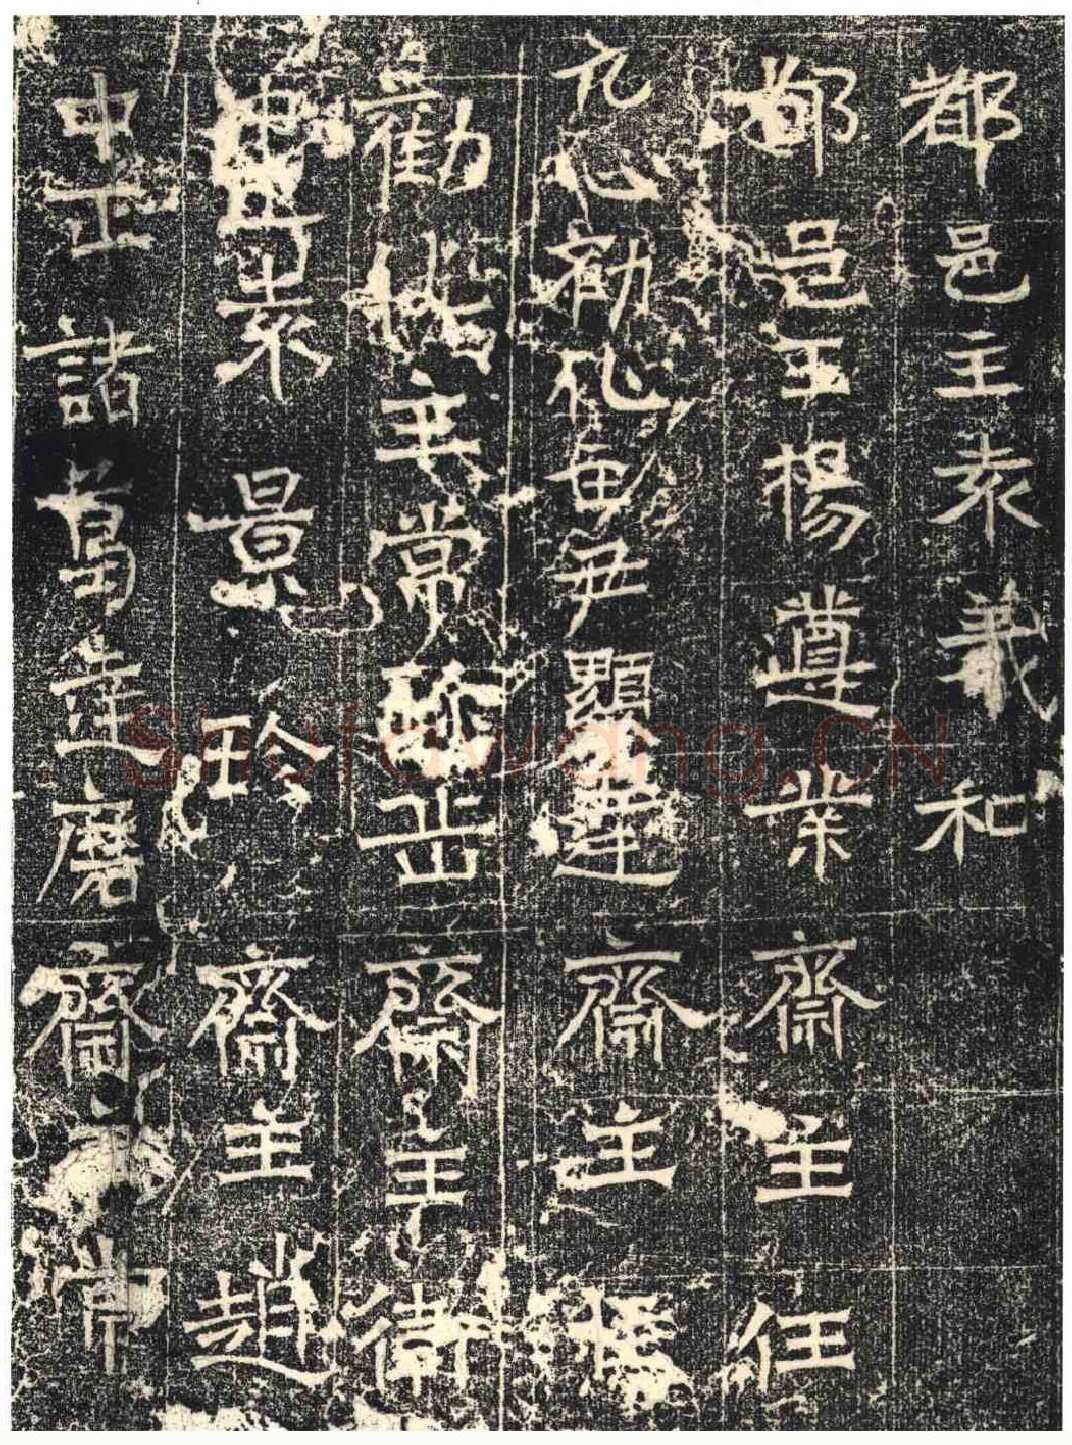 都邑主袁義和
都邑主楊遵業齋主任
瓦勸化主尹顯達齋主
勸化主常岳齋主衛
袁景聆齋主趙
中士諸葛達磨齋
Shufawang.CN